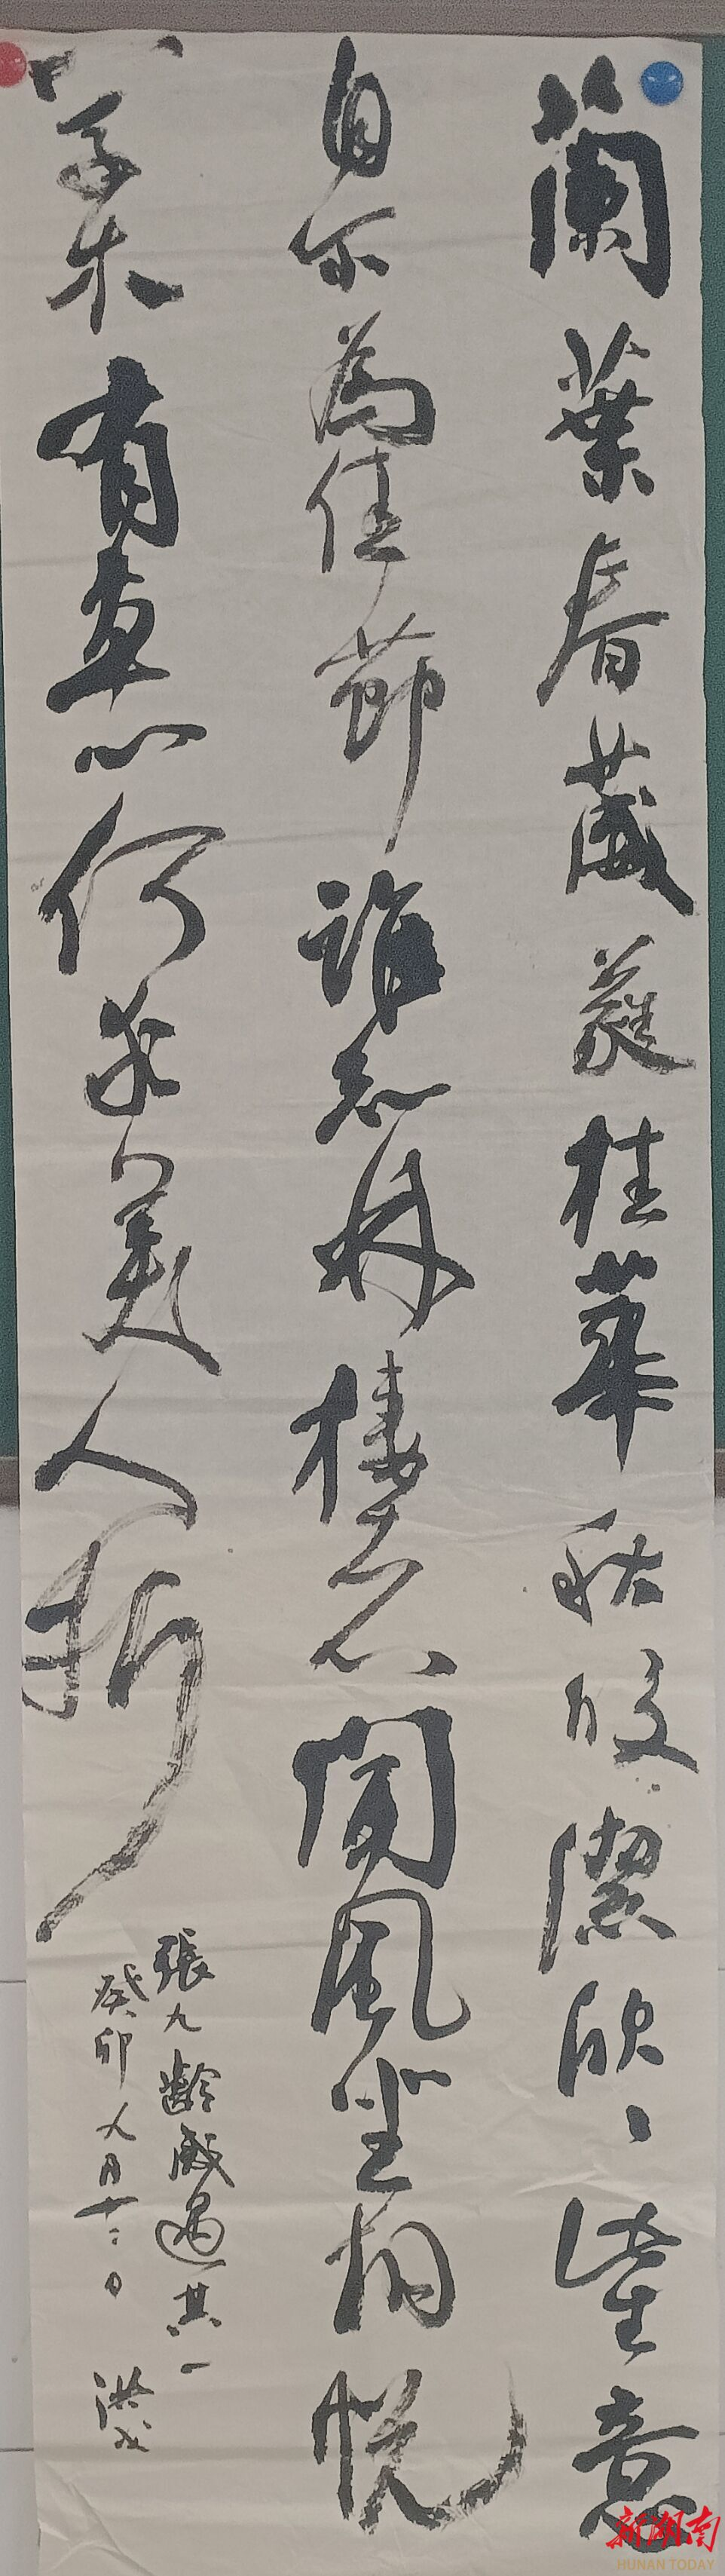 蘭葉春葳蕤桂華秋皎潔欣〻此生意
自尒為佳節誰知林棲者聞風坐相悅
草木有本心何求美人折
張九齡感遇其一
癸卯九月十二日 洪
新湖南
HUNAN TODAY